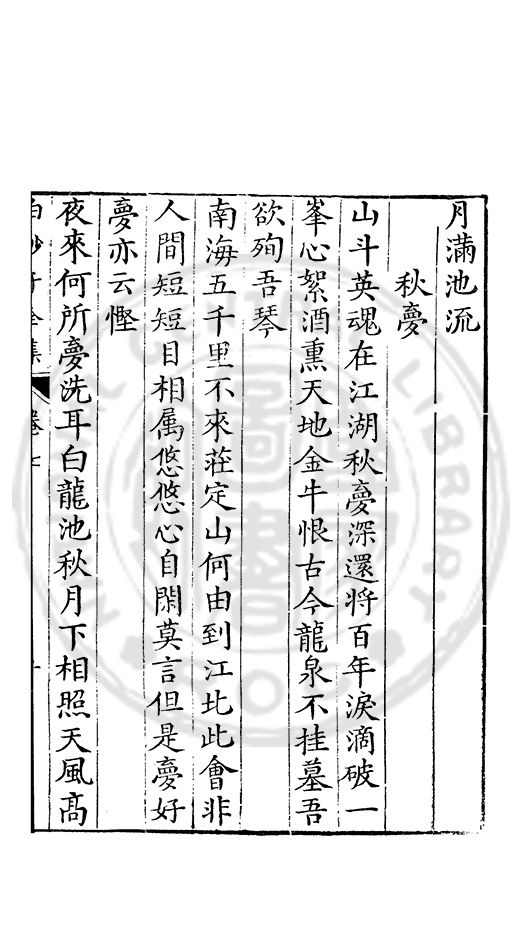 月滿池流
秋夣
山斗英魂在江湖秋夣深還將百年淚滴破一
峯心絮酒熏天地金牛恨古今龍泉不挂墓吾
欲殉吾琴
南海五千里不來莊定山何由到江北此會非
人間短短目相属悠悠心自閑莫言但是夣好
夣亦云慳
夜來何所夣洗耳白龍池秋月下相照天風髙
白沙子全集
卷七